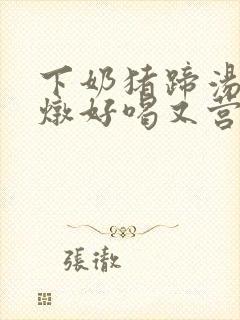 下奶猪蹄湯
燉好喝又营
張澈